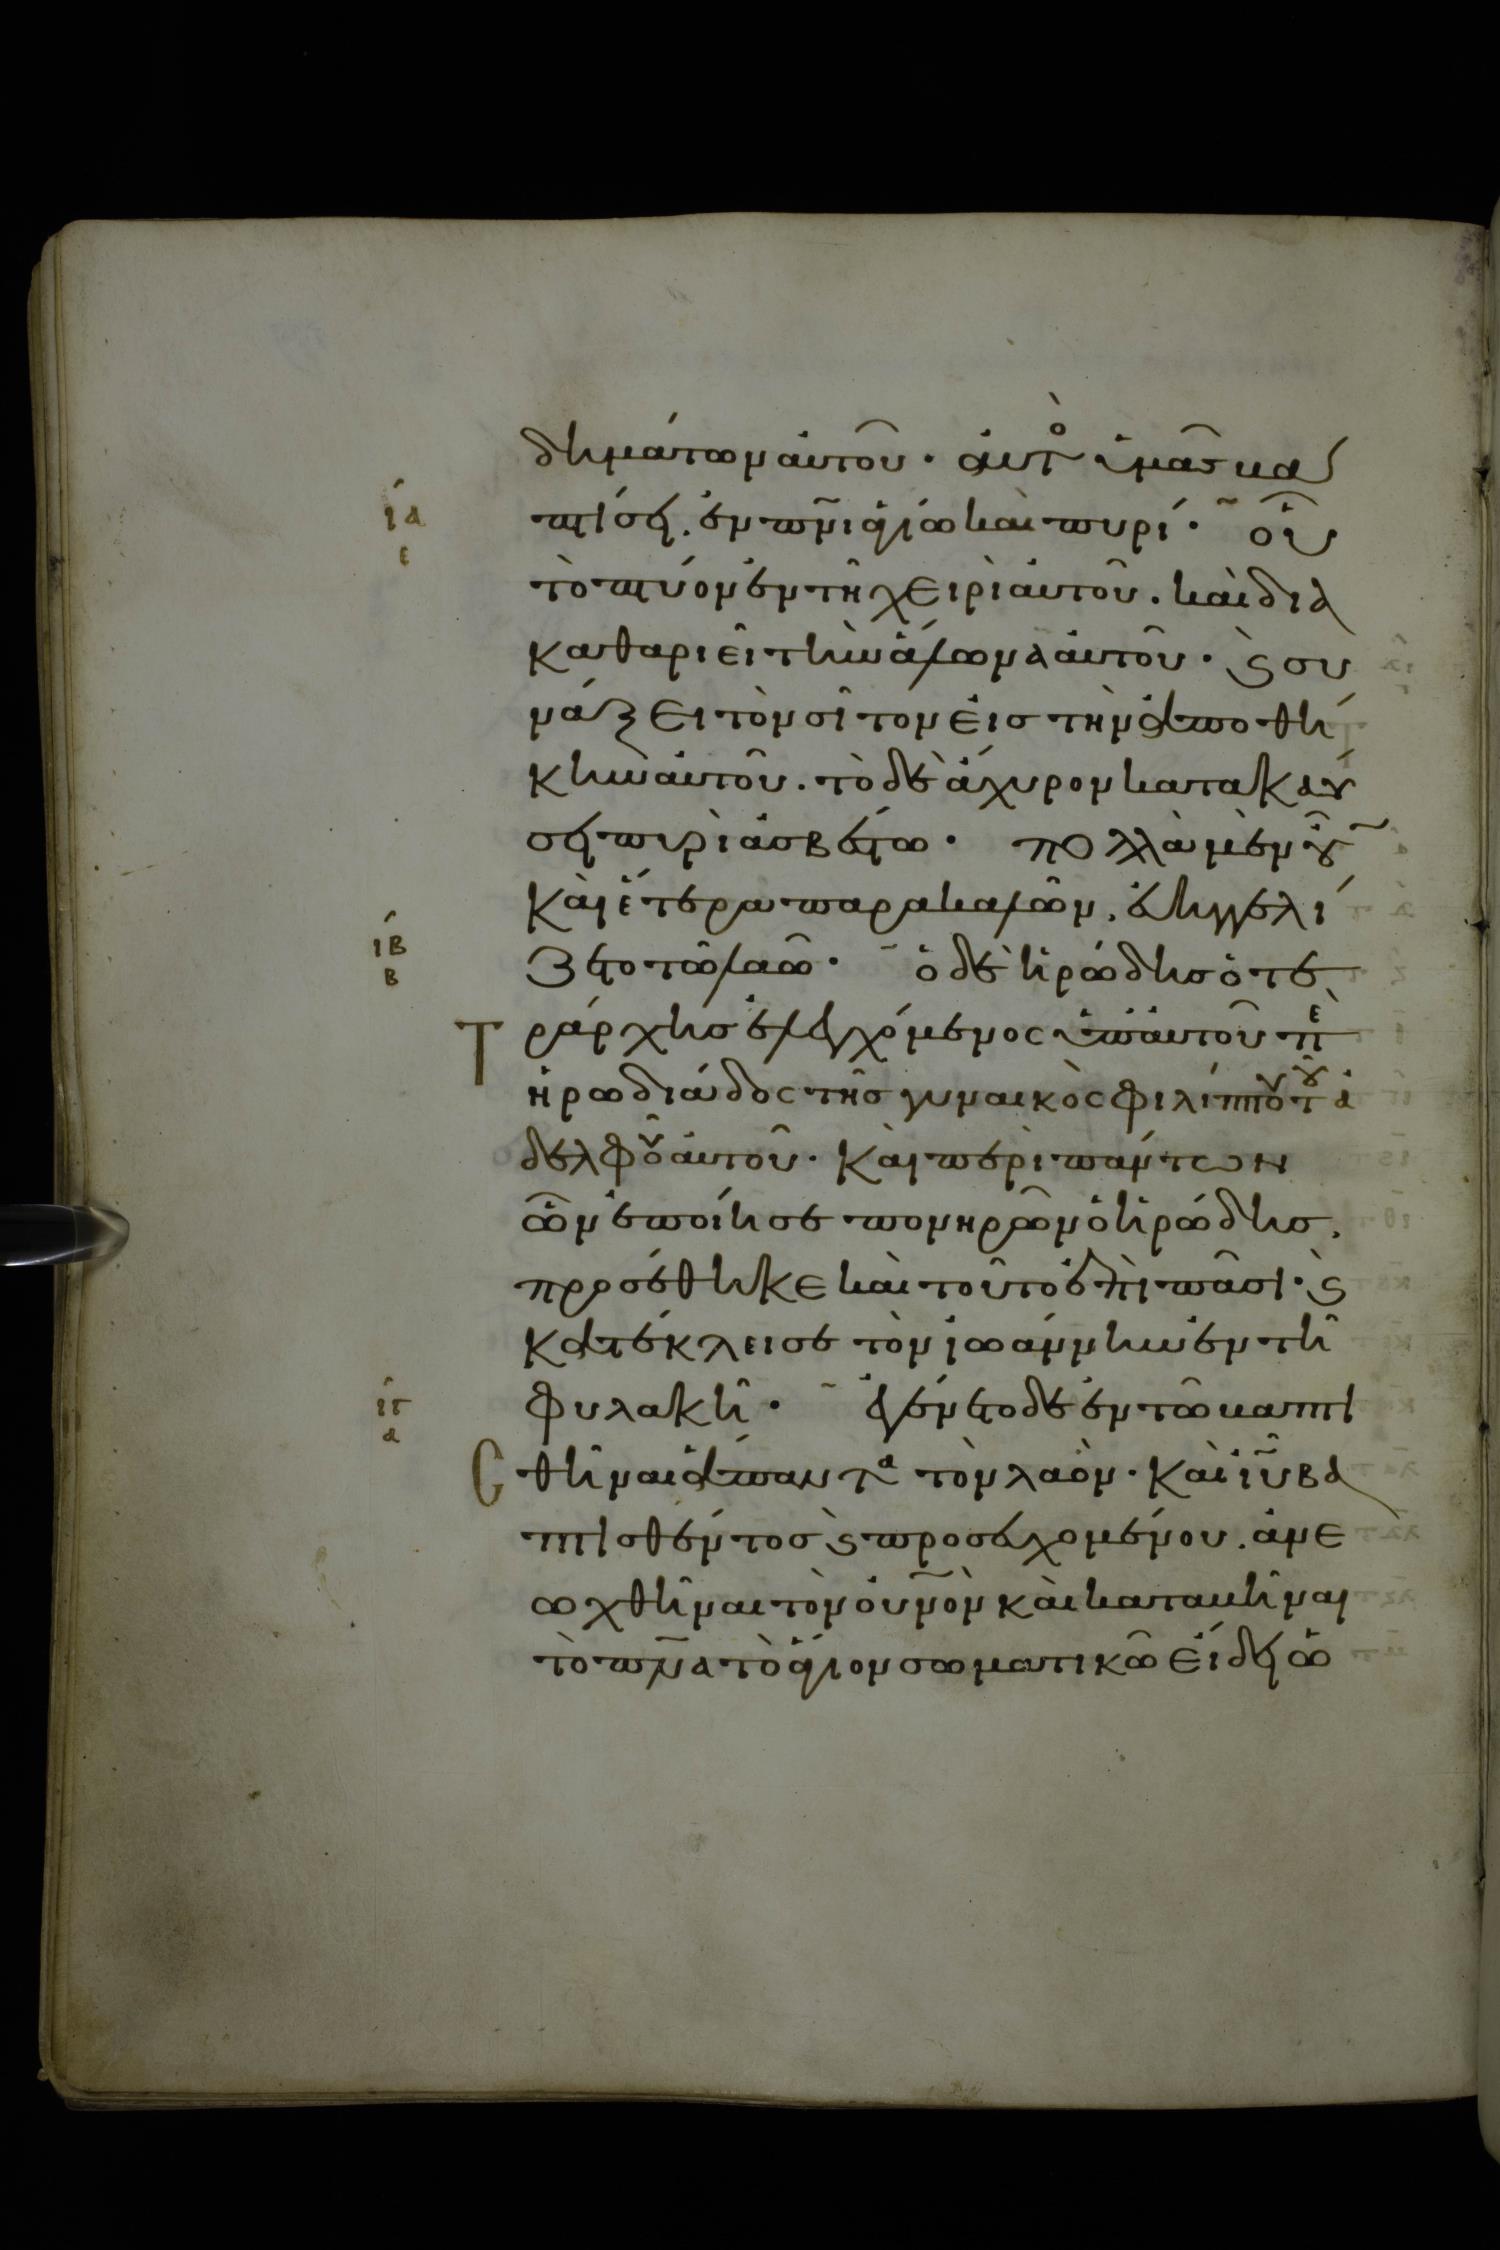 δημάτων αὐτοῦ· αὐτὸ ὑμᾶς βα
ια
πτίσει. ἐν πν̅ι ἁγίω καὶ πυρί· οὗ
ε
τὸ πτύον ἐν τῆ χειρὶ αὐτοῦ. καὶ δια
καθαριεῖ τὴν ἅλωνα αὐτοῦ· ϗ συ
νάξει τὸν σῖτον εἰς τὴν ἀποθή
κην αὐτοῦ. τὸ δὲ ἄχυρον κατακαύ
σει πυρὶ ἀσβέστω· πολλὰ μὲν οὖ
καὶ ἕτερα παρακαλῶν, εὐηγγελί
ιβ
ζετο τῶ λαῶ· ὁ δὲ ἡρώδης ὁ τε
β
τράρχης ἐλεγχόμενος ὑπ' αὐτοῦ πὲ
ἡρωδιάδος τῆς γυναικὸς φιλίππου τοῦ ἀ
δελφοῦ αὐτοῦ· καὶ περὶ πάντων
ὧν ἐποίησε πονηρῶν ὁ ἡρώδης,
προσέθηκε καὶ τοῦτο ἐπὶ πᾶσι· ϗ
κατέκλεισε τὸν ἰωάννην ἐν τῆ
ιγ
φυλακῆ· ἐγένετο δὲ ἐν τῶ βαπτι
α
ε
σθῆναι ἅπαντα τὸν λαὸν· καὶ ι̅υ̅ βα
πτισθέντος ϗ προσευχομένου. ἀνε
ωχθῆναι τὸν οὐν̅ὸν καὶ καταβῆναι
τὸ πν̅α τὸ ἅγιον σωματικῶ εἴδει ὡ